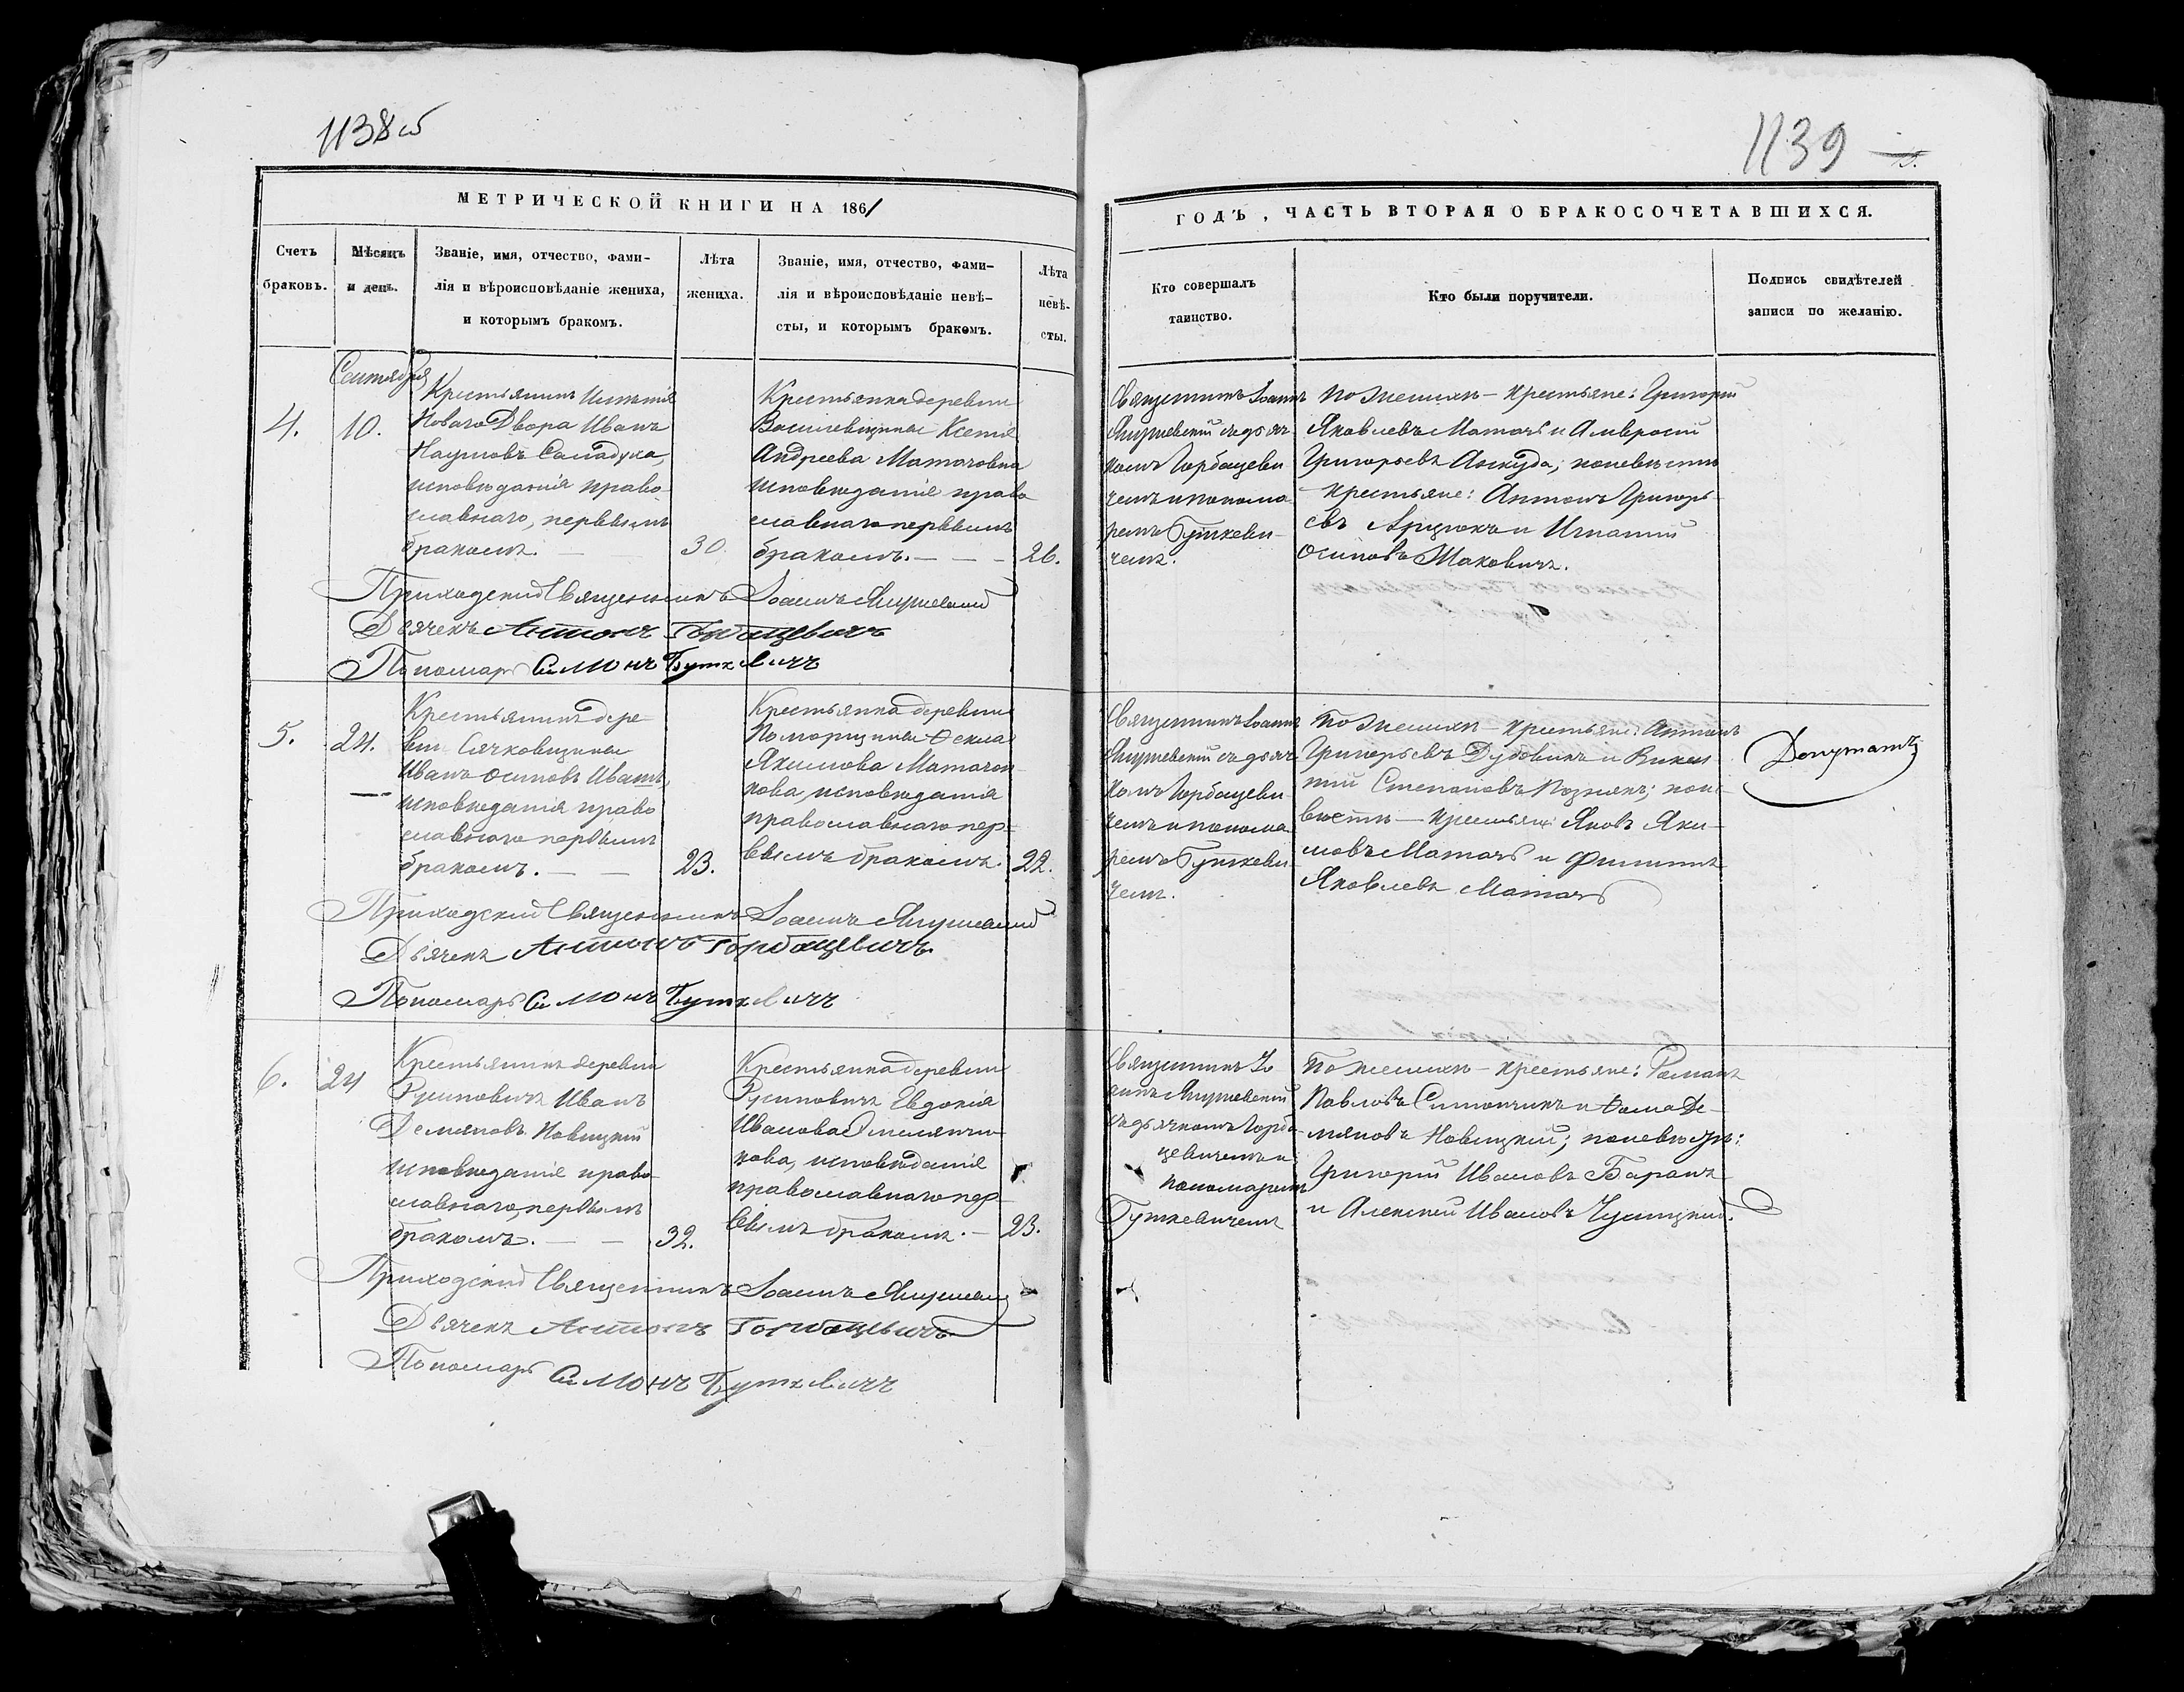 1138об
1139
МЕТРИЧЕСКОЙ КНИГИ НА 1861
ГОДЪ, ЧАСТЬ ВТОРАЯ О БРАКОСОЧЕТАВШИХСЯ.
Счетъ
браковъ.
Мѣсяцъ
и день.
Званіе, имя, отчество, фами-
лія и вѣроисповѣданіе жениха,
и которымъ бракомъ.
Лѣта
жениха.
Званіе, имя, отчество, фами-
лія и вѣроисповѣданіе невѣ-
сты, и которымъ бракомъ.
Лѣта
невѣ-
сты.
Кто совершалъ
таинство.
Кто были поручители.
Подпись свидѣтелей
записи по желанію.
Сентября
4.
10.
Крестьянинъ Имѣнія
Новаго Двора Иванъ
Наумовъ
исповѣданія право-
славнаго, первымъ
бракомъ.
30.
Крестьянка деревни
Василевщины Ксенія
Андреева Матачовна
исповѣданія право
славнаго первымъ
бракомъ.
26.
Священникъ Іоаннъ
съ дьяч-
комъ Горбацеви
чемъ и понома
ремъ Буткеви-
чемъ.
По женихѣ - крестьяне: Григорій
Яковлевъ Матачъ и Амвросій
Григорьевъ Аскуда; по невѣстѣ
- крестьяне: Антонъ Григорь-
евъ и Игнатій
Осиповъ Маковичъ.
Приходскій Священникъ Іоаннъ
Дьячекъ Антонъ Горбацевичъ
Пономарь Симонъ Буткевичъ
5.
24.
Крестьянинъ дере-
вни Сачковщины
Иванъ Осиповъ Ивашъ,
исповѣданія право
славнаго первымъ
бракомъ.
23.
Крестьянка деревни
Ѳекла
Якимова Матачон-
кова, исповѣданія
православнаго пер-
вымъ бракомъ.
22.
Священникъ Іоаннъ
съ дьяч-
комъ Горбацеви
чемъ и понома
ремъ Буткеви
чемъ.
По женихѣ - крестьяне: Антонъ
Григорьевъ Дубовикъ и Викен-
тій Степановъ Познякъ; по не-
вѣстѣ - крестьяне: Яковъ Яки-
мовъ Матачъ и Филиппъ
Яковлевъ Матачъ
Приходскій Священникъ Іоаннъ
Дьячекъ Антонъ Горбацевичъ.
Пономарь Симонъ Буткевичъ
6.
24
Крестьянинъ деревни
Русиновичъ Иванъ
Демяновъ Новицкій
исповѣданія право-
славнаго, первымъ
бракомъ.
32.
Крестьянка деревни
Русиновичъ Евдокія
Иванова
кова, исповѣданія
православнаго пер-
вымъ бракомъ.
23.
Священникъ Іо
аннъ
съ дьячкомъ Горба
цевичемъ и
пономаремъ
Буткевичемъ
По женихѣ - крестьяне: Романъ
Павловъ Симончикъ и Ѳома Де-
мяновъ Новицкій; по невѣстѣ:
Григорій Ивановъ Баранъ
и Алексѣй Ивановъ
Приходскій Священникъ Іоаннъ
Дьячекъ Антонъ Горбацевичъ
Пономарь Симонъ Буткевичъ